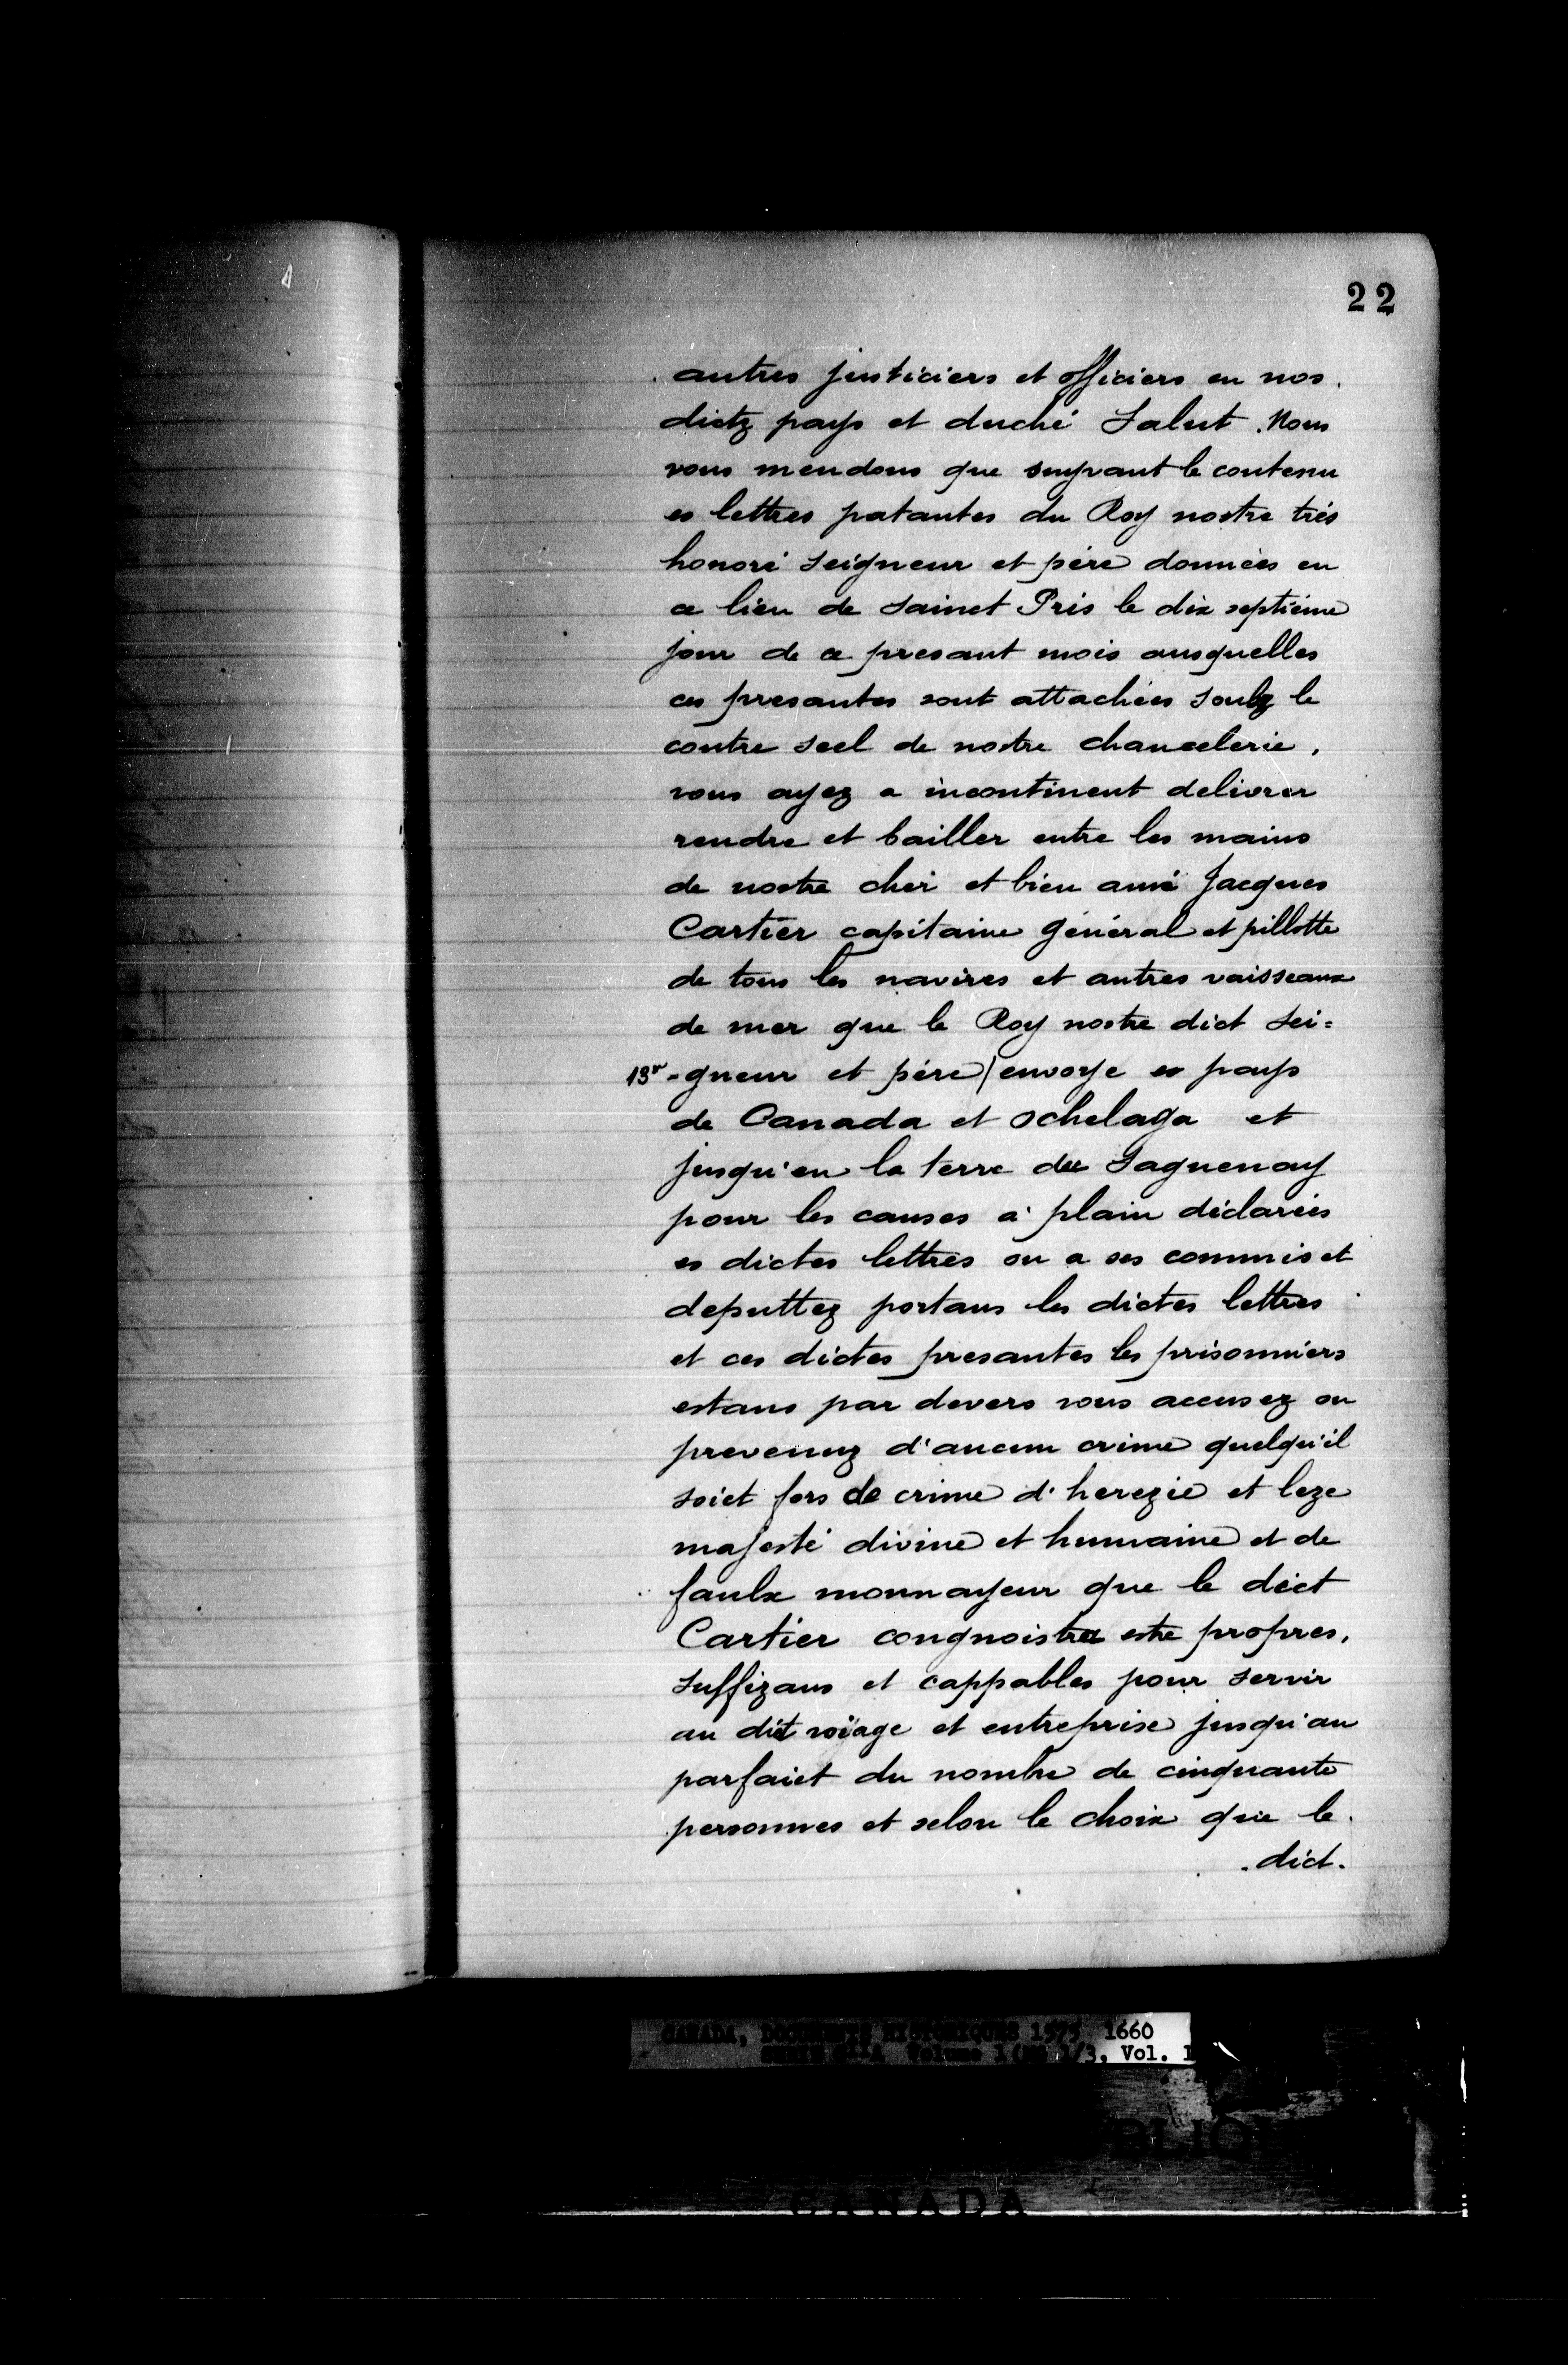 22
autres justiciers et officiers en nos
dictz pays et duché Salut. Nous
vous mendons que suyvant le contenu
es lettres patantes du Roy nostre très
honoré seigneur et père données en
ce lieu de sainct Pris le dix septième
jour de ce presant mois ausquelles
ces presantes sont attachées soubz le
contre scel de nostre chancelerie,
vous ayez a incontinent delivrer
rendre et bailler entre les mains
de nostre cher et bien amé Jacques
Cartier capitaine général et pillotte
de tous les navires et autres vaisseaux
de mer que le Roy nostre dict sei=
13v -gneur et père/envoye es pays
de Canada et ochelaga et
jusqu'en la terre du Saguenay
pour les causes à plain déclarées
es dictes lettres ou a ses commis et
deputtez portans les dictes lettres
et ces dictes presantes les prisonniers
estans par devers vous accusez ou
prevenuz d'aucun crime quelqu'il
soict fors de crime d'herezie et leze
majesté divine et humaine et de
faulx monnayeur que le dict
Cartier congnoistra estre propres,
suffizans et cappables pour servir
au dit voïage et entreprise jusqu'au
parfaict du nombre de cinquante
personnes et selon le choix que le
.dict.
CANADA, DOCUMENTS HISTORIQUES 1575 1660
Volume 1 1/3, Vol. 1
CANADA